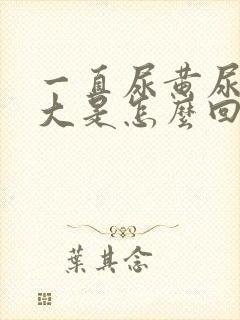 一直尿黄尿
大是怎麼回
葉其念